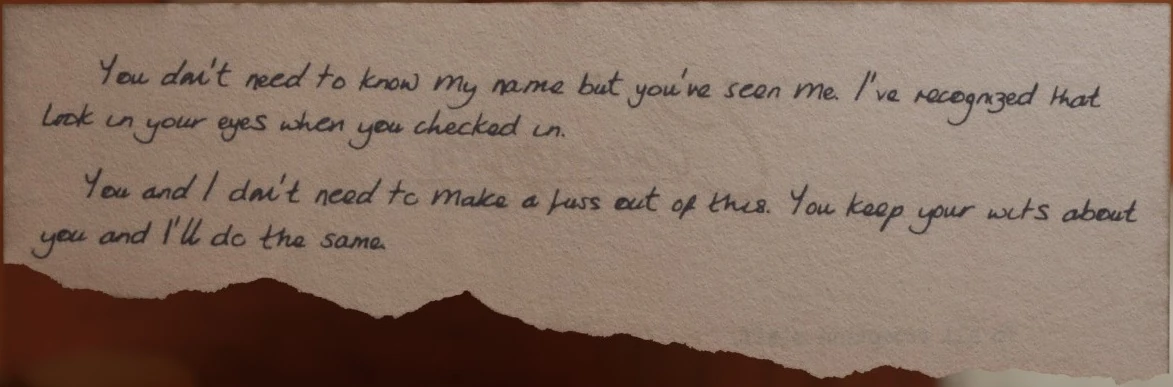 You don't need to know my name but you've seen me. I've recognized that
look in your eyes when you checked in.
You and I don't need to make a fuss out of this. You keep your wits about
you and I'll do the same.